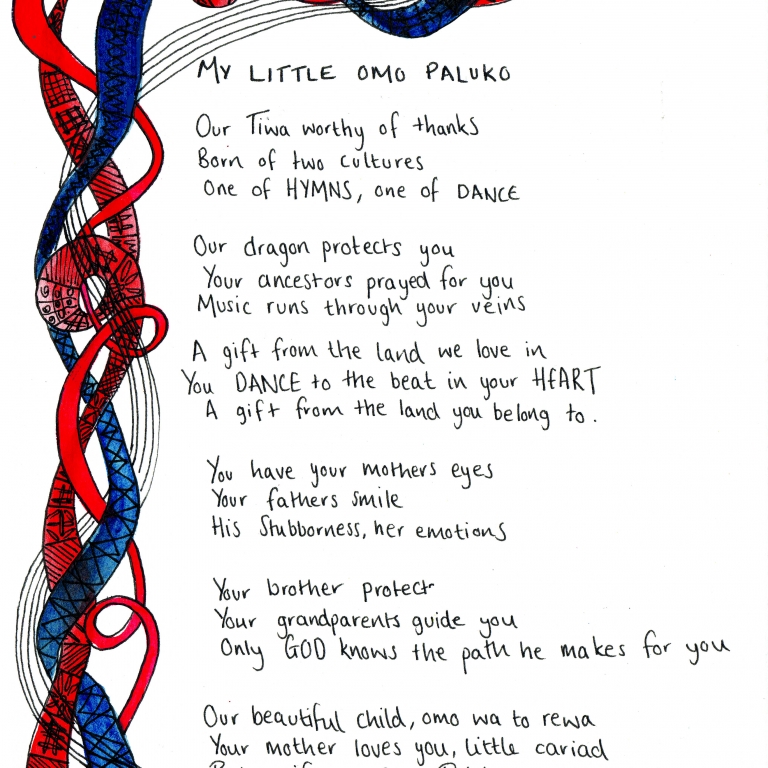 MY LITTLE OMO PALUKO
Our Tiwa worthy of thanks
Born of two cultures
One of HYMNS, one of DANCE
Our dragon protects you
Your ancestors prayed for you
Music runs through your veins
A gift from the land we love in
You DANCE to the beat in your HEART
A gift from the land you belong to.
You have your mothers eyes
Your fathers smile
His Stubborness, her emotions
Your brother protect
Your grandparents guide you
Only GOD knows the path he makes for you
Our beautiful child, omo wa to rewa
Your mother loves you, little cariad